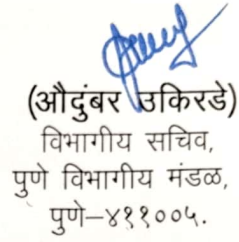 (औदुंबर उकिरडे)
विभागीय सचिव,
पुणे विभागीय मंडळ,
पुणे–४११००५.